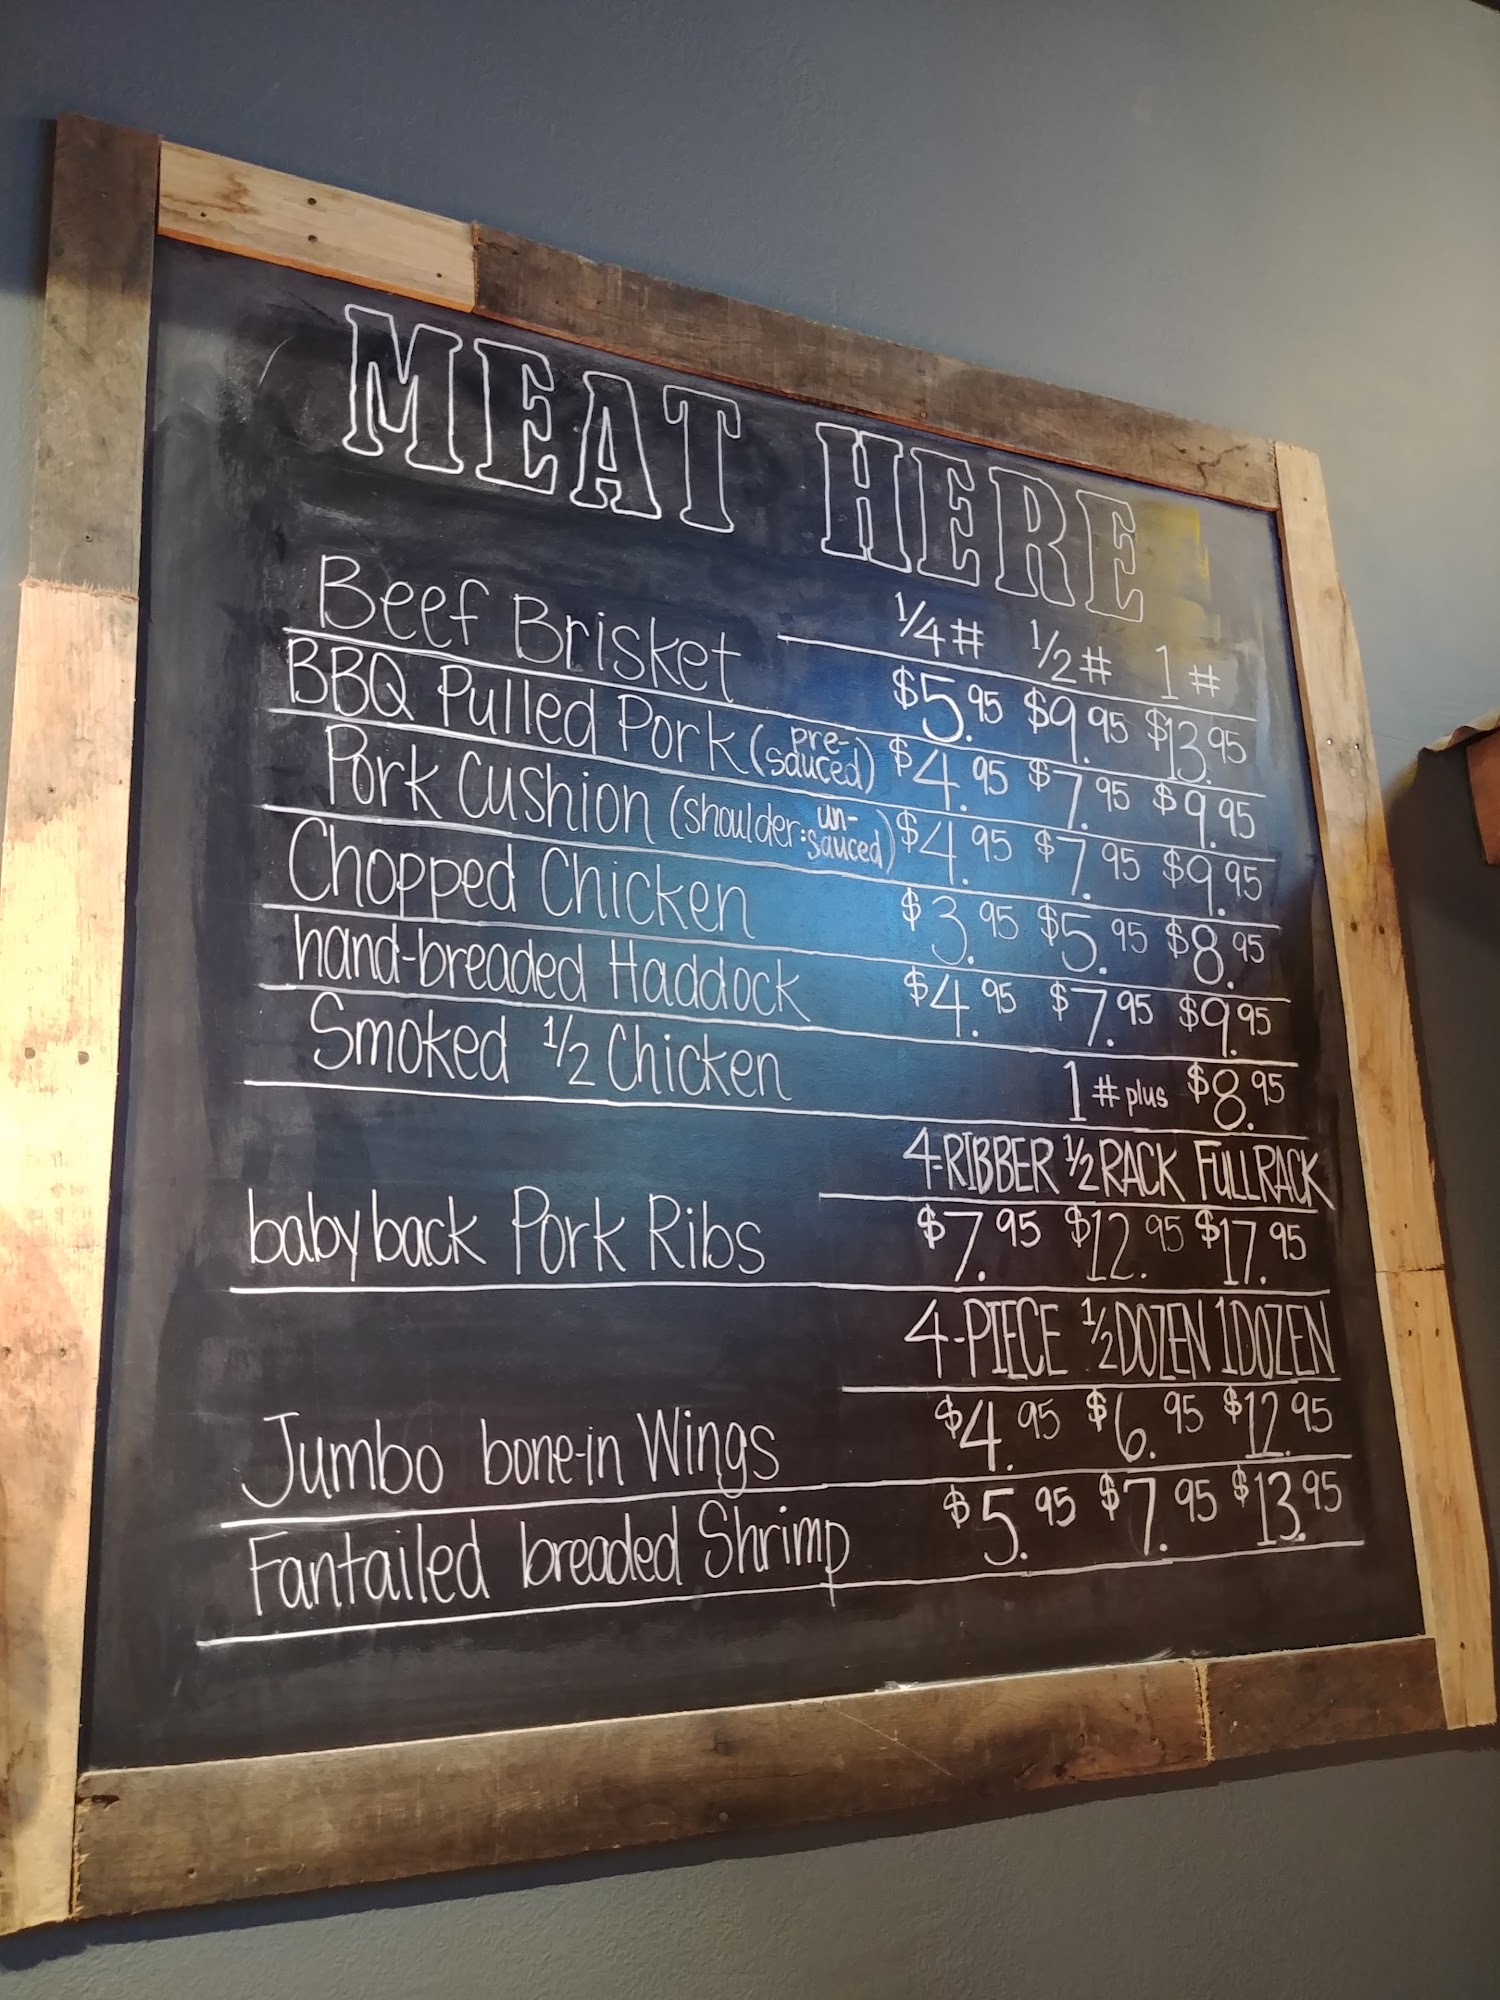 MEAT HERE
1/4# 1/2# 1#
Beef Brisket $5.95 $9.95 $13.95
BBQ Pulled Pork (pre-sauced) $4.95 $7.95 $9.95
Pork Cushion (shoulder: un-sauced) $4.95 $7.95 $9.95
Chopped Chicken $3.95 $5.95 $8.95
hand-breaded Haddock $4.95 $7.95 $9.95
Smoked 1/2 Chicken 1# plus $8.95
4-RIBBER 1/2 RACK FULL RACK
baby back Pork Ribs $7.95 $12.95 $17.95
4-PIECE 1/2 DOZEN 1 DOZEN
Jumbo bone-in Wings $4.95 $6.95 $12.95
Fantailed breaded Shrimp $5.95 $7.95 $13.95